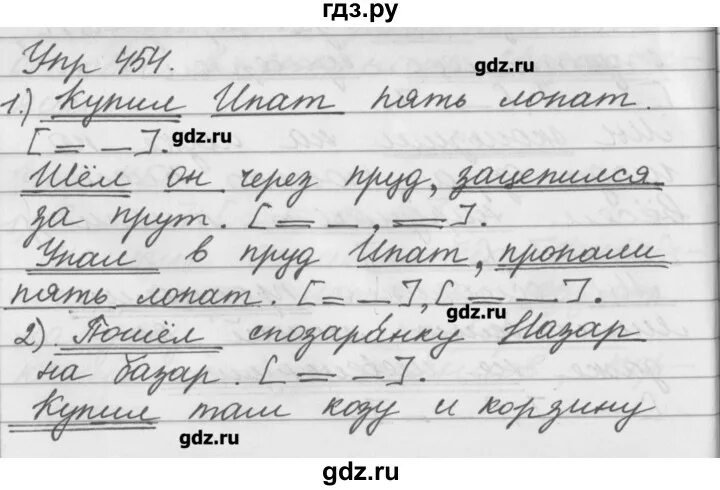 гдз.ру
Упр 454.
gdz.ru
1.) Купил Ипат пять лопат.
[= –]. gdz.ru
Шёл он через пруд, зацепился
за прут. [= –, =].
Упал в пруд Ипат, пропали
пять лопат. [= –], [= –].
gdz.ru
2) Пошёл спозаранку Назар
на базар. [= –].
Купил там козу и корзину
gdz.ru
gdz.ru